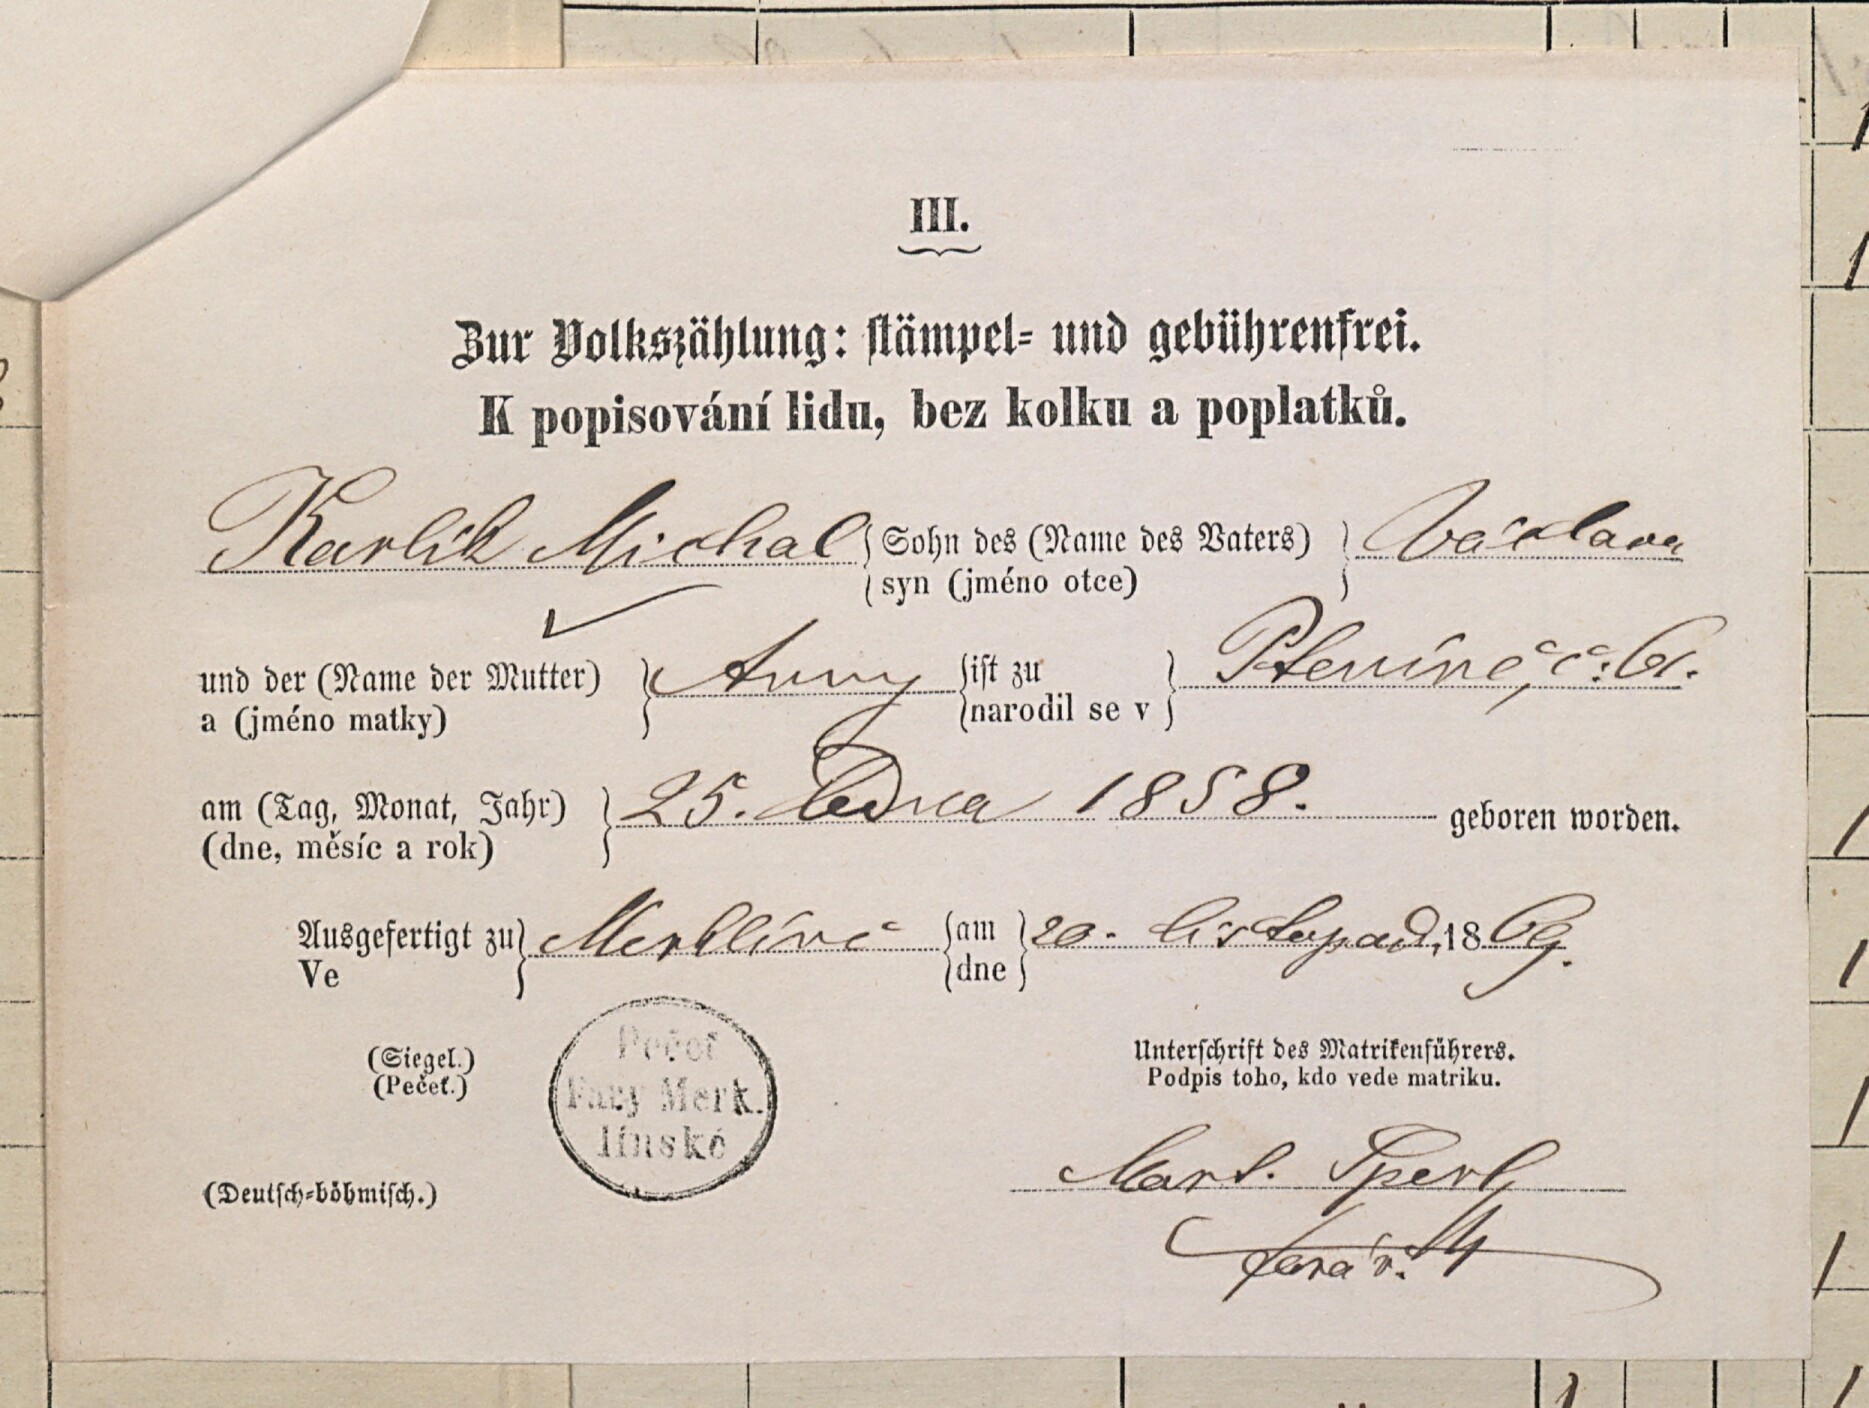 III.
Zur Volkszählung: stämpel- und gebührenfrei.
K popisování lidu, bez kolku a poplatků.
Karlík Michal { Sohn des (Name des Vaters) } Václava
syn (jméno otce)
und der (Name der Mutter) } Anny { ist zu } Pteníně, č: 61.
a (jméno matky) narodil se v
am (Tag, Monat, Jahr) } 25. ledna 1858. geboren worden.
(dne, měsíc a rok)
Ausgefertigt zu } Merklíně { am } 20. listopad, 1869.
Ve dne
(Siegel.)
(Pečeť.)
Pečeť
Fary Merk.
línské
Unterschrift des Matrikenführers.
Podpis toho, kdo vede matriku.
(Deutsch-böhmisch.)
Mart. Šperl,
farář.